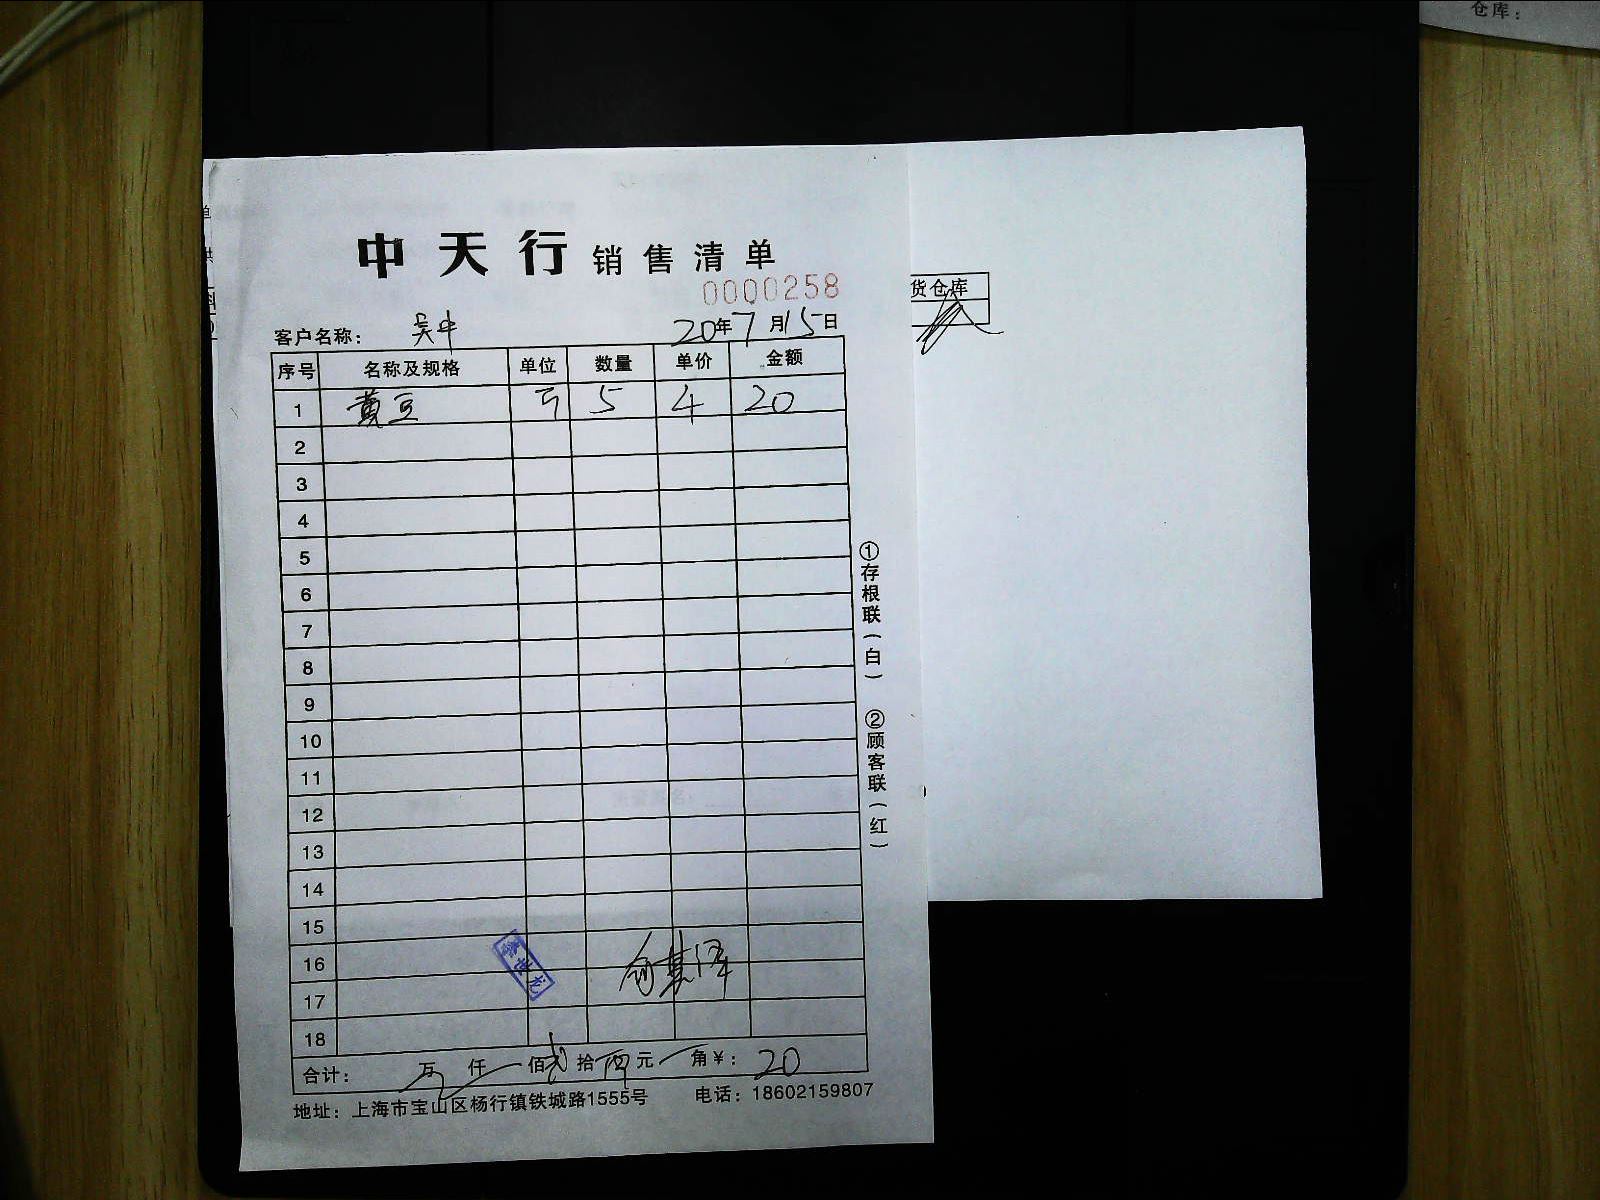 仓库：
中天行 销售清单
0000258
货仓库
客户名称： 吴中 20年7月15日
序号 名称及规格 单位 数量 单价 金额
1 黄豆 5 4 20
2
3
4
5
6
7
8
9
10
11
12
13
14
15
16
17
18
①存根联（白） ②顾客联（红）
合计： 万 仟 佰 贰 拾 元 角 ¥： 20
地址：上海市宝山区杨行镇铁城路1555号 电话：18602159807